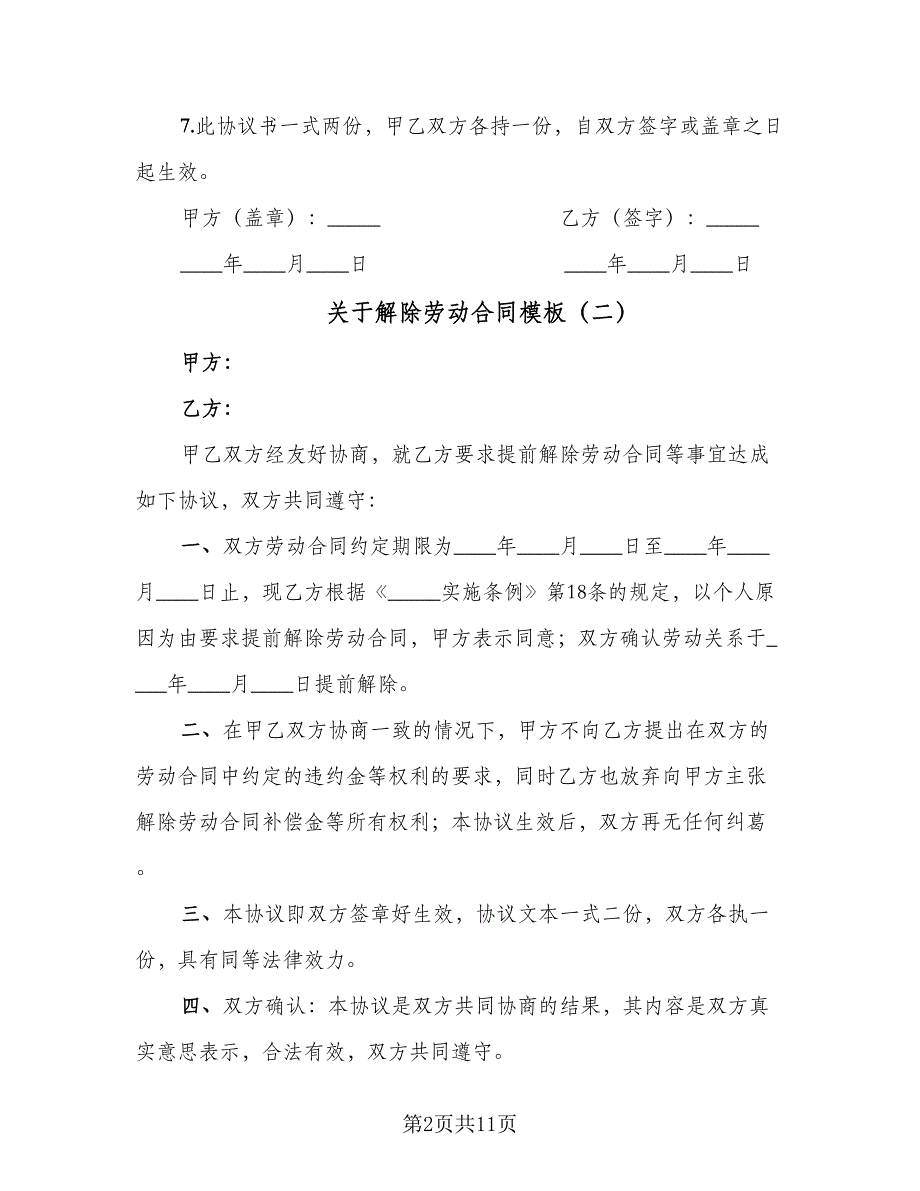 7.此协议书一式两份，甲乙双方各持一份，自双方签字或盖章之日
起生效。
甲方（盖章）：_____ 乙方（签字）：_____
____年____月____日 ____年____月____日
关于解除劳动合同模板（二）
甲方：
乙方：
甲乙双方经友好协商，就乙方要求提前解除劳动合同等事宜达成
如下协议，双方共同遵守：
一、双方劳动合同约定期限为____年____月____日至____年____
月____日止，现乙方根据《_____实施条例》第18条的规定，以个人原
因为由要求提前解除劳动合同，甲方表示同意；双方确认劳动关系于_
___年____月____日提前解除。
二、在甲乙双方协商一致的情况下，甲方不向乙方提出在双方的
劳动合同中约定的违约金等权利的要求，同时乙方也放弃向甲方主张
解除劳动合同补偿金等所有权利；本协议生效后，双方再无任何纠葛
。
三、本协议即双方签章好生效，协议文本一式二份，双方各执一
份，具有同等法律效力。
四、双方确认：本协议是双方共同协商的结果，其内容是双方真
实意思表示，合法有效，双方共同遵守。
第2页共11页